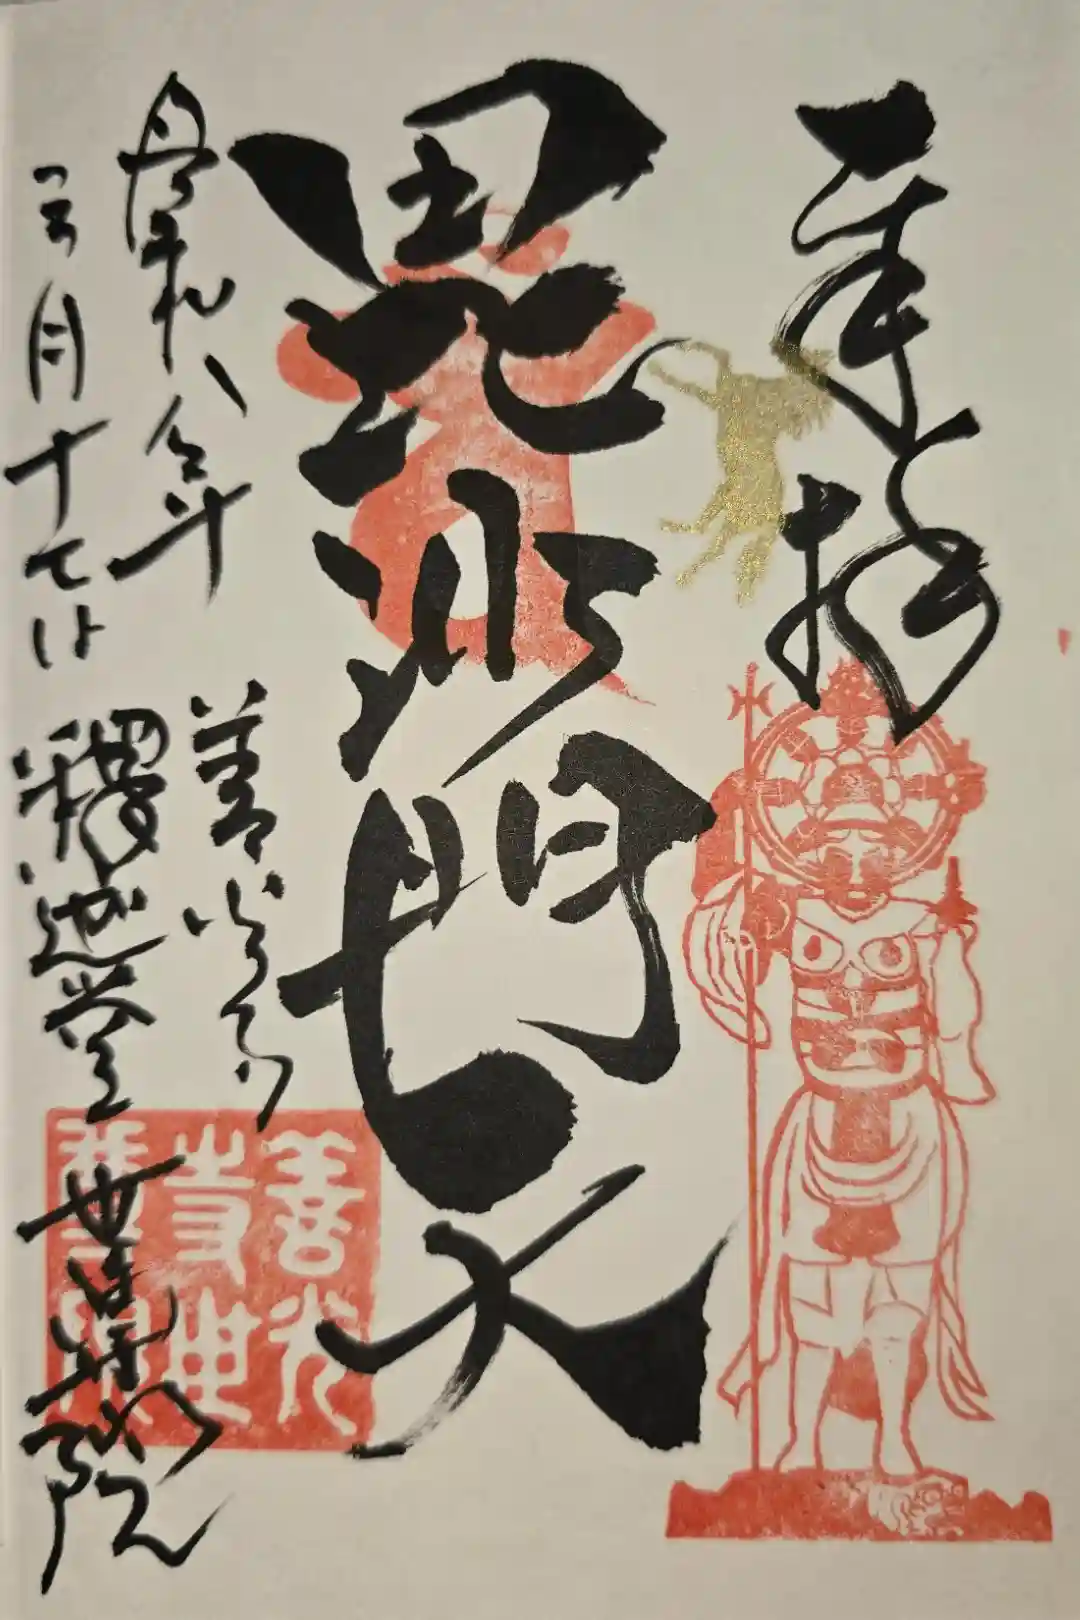 奉拝
毘沙門天
令和八年
三月十七日
善光寺
釋迦堂 世尊院
善光
寺世
尊院